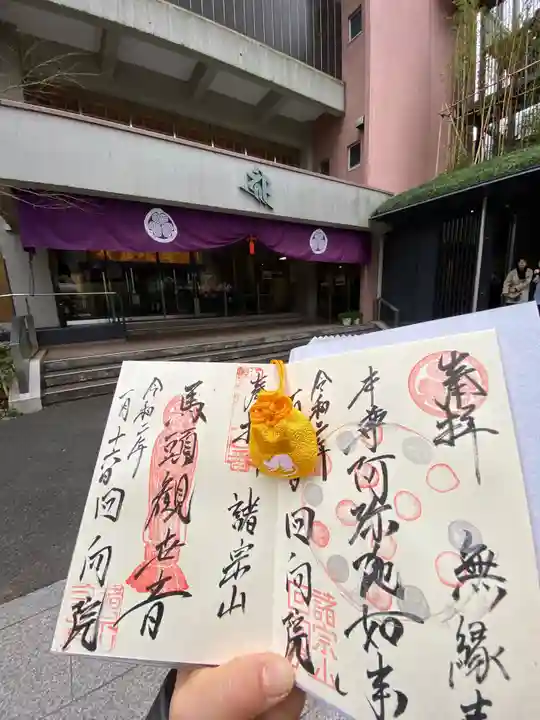 奉拝
無縁寺
本尊阿弥陀如来
令和二年
回向院
諸宗山
諸宗山
馬頭観世音
令和二年
一月十六日回向院